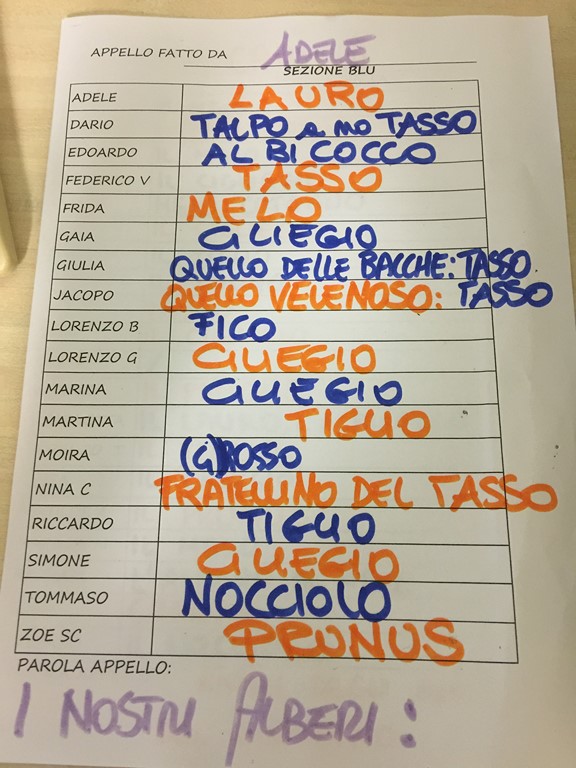 APPELLO FATTO DA ADELE
SEZIONE BLU
ADELE LAURO
DARIO TALPO a mo TASSO
EDOARDO ALBICOCCO
FEDERICO V TASSO
FRIDA MELO
GAIA CILIEGIO
GIULIA QUELLO DELLE BACCHE: TASSO
JACOPO QUELLO VELENOSO: TASSO
LORENZO B FICO
LORENZO G CILIEGIO
MARINA CILIEGIO
MARTINA TIGLIO
MOIRA (G)ROSSO
NINA C FRATELLINO DEL TASSO
RICCARDO TIGLIO
SIMONE CILIEGIO
TOMMASO NOCCIOLO
ZOE SC PRUNUS
PAROLA APPELLO:
I NOSTRI ALBERI: